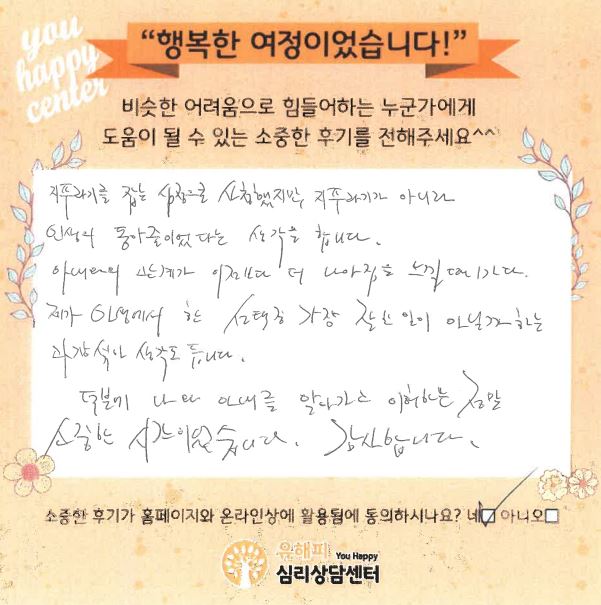 you
happy
center
“행복한 여정이었습니다!”
비슷한 어려움으로 힘들어하는 누군가에게
도움이 될 수 있는 소중한 후기를 전해주세요^^
지푸라기를 잡는 심정으로 신청했지만, 지푸라기가 아니라
인생의 동아줄이었다는 생각을 합니다.
아내와의 관계가 어제보다 더 나아짐을 느낄 때이기다.
제가 인생에서 한 선택 중 가장 잘한 일이 아닐까 하는
과장 섞인 생각도 듭니다.
덕분에 나와 아내를 알아가고 이해하는 정말
소중한 시간이었습니다. 감사합니다.
소중한 후기가 홈페이지와 온라인상에 활용됨에 동의하시나요? 네☑ 아니오□
유해피 You Happy
심리상담센터